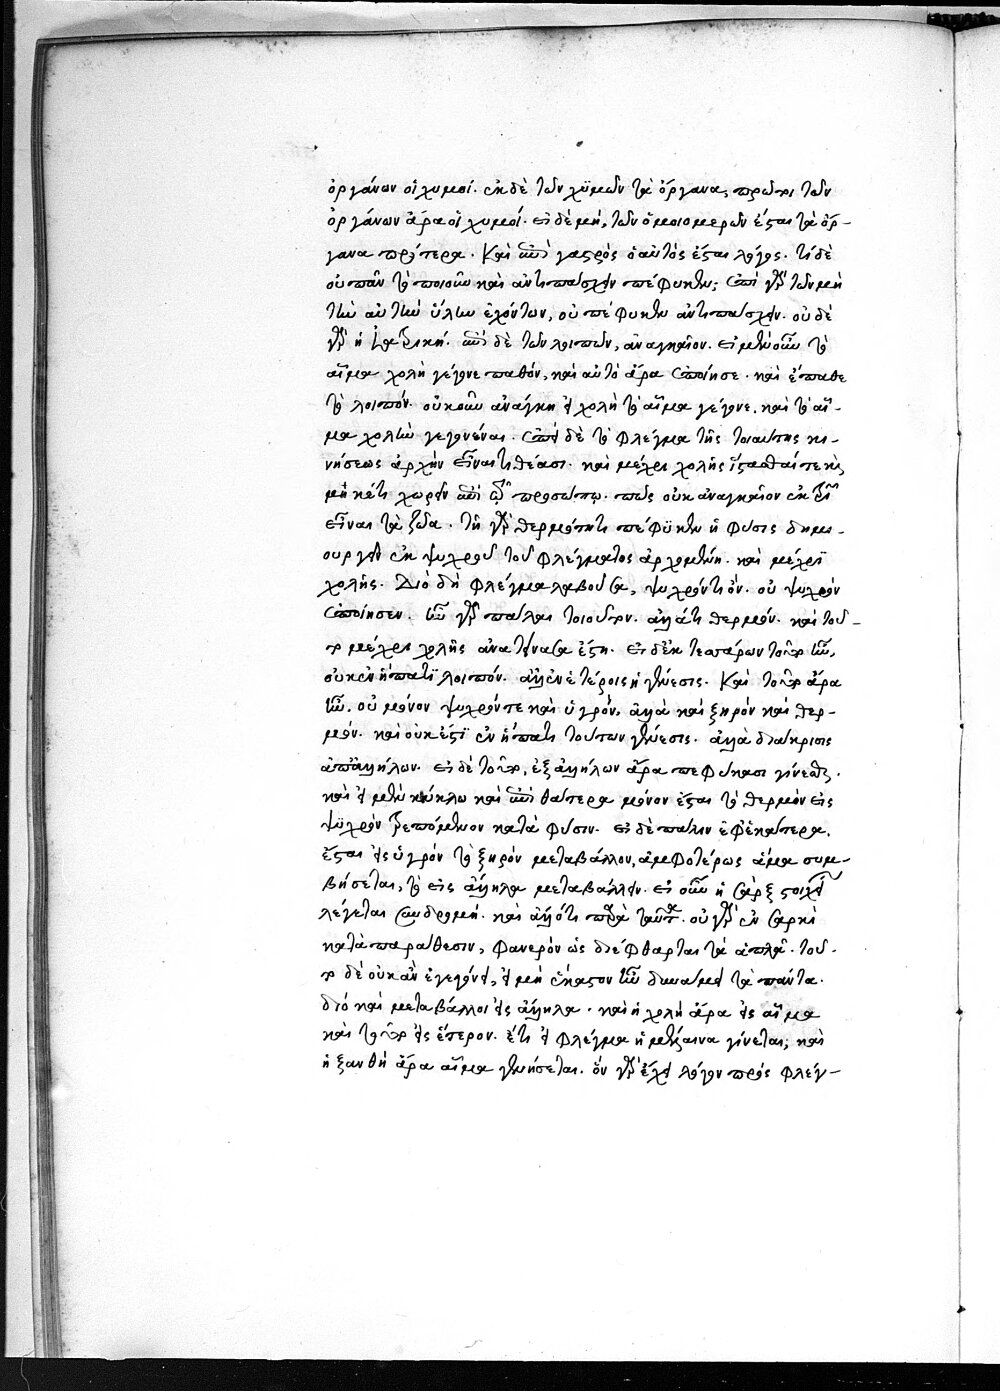 ὀργάνων οἱ χυμοί. ἐκ δὲ τῶν χϋμῶν τὰ ὄργανα, πρῶτοι τῶν
ὀργάνων ἄρα οἱ χυμοί. εἰ δὲ μὴ, τῶν ὁμοιομερῶν ἔσται τὰ ὄρ-
γανα πρότερα. Καὶ ἐπὶ γαστρὸς ὁ αὐτὸς ἔσται λόγος. τί δὲ
οὐ πᾶν τὸ ποιοῦν καὶ ἀντιπάσχειν πέφυκεν; ἐπεὶ γὰρ τῶν μὴ
τὴν αὐτὴν ὕλην ἐχόντων, οὐ πέφυκεν ἀντιπάσχειν. οὐδὲ
γὰρ ἡ ἰατρική. ἐπὶ δὲ τῶν λοιπῶν, ἀναγκαῖον. εἰ μὲν οὖν τὸ
αἷμα χολὴ γέγονε παθόν, καὶ αὐτὸ ἄρα ἐποίησε. καὶ ἔπαθε
τὸ λοιπόν. οὐκοῦν ἀνάγκη εἰ χολὴ τὸ αἷμα γέγονε, καὶ τὸ αἷ-
μα χολὴν γεγονέναι. ἐπεὶ δὲ τὸ φλέγμα τῆς τοιαύτης κι-
νήσεως ἀρχὴν εἶναι τιθέασι. καὶ μέχρι χολῆς ἵστασθαί τε καὶ
μηκέτι χωρεῖν ἐπὶ τὸ προσωτέρω. πῶς οὐκ ἀναγκαῖον ἐκ
εἶναι τὰ ζῶα. τῇ γὰρ θερμότητι πέφϋκεν ἡ φύσις δημι-
ουργεῖν ἐκ ψυχροῦ τοῦ φλέγματος ἀρχομένη. καὶ μέχρϊ
χολῆς. Διὸ δὴ φλέγμα λαβοῦσα, ψυχρόν τι ὄν. οὐ ψυχρὸν
ἐποίησεν. ἦν γὰρ πάλαι τοιοῦτον. ἀλλά τι θερμόν. καὶ τοῦ-
το μέχρι χολῆς ἀνατείνασα ἔστη. εἰ δ' ἐκ τεσσάρων τοῦτο ἦν,
οὐκ ἐν ἥπατϊ λοιπόν. ἀλλ' ἐν ἑτέροις ἡ γένεσις. Καὶ τοῦτο ἄρα
ἦν. οὐ μόνον ψυχρόν τε καὶ ὑγρόν, ἀλλὰ καὶ ξηρὸν καὶ θερ-
μόν. καὶ οὐκ ἔστϊ ἐν ἥπατι τούτων γένεσις. ἀλλὰ διάκρισις
ἀπ' ἀλλήλων. εἰ δὲ τοῦτο, ἐξ ἀλλήλων ἄρα πεφύκασι γίνεσθαι.
καὶ εἰ μὲν κύκλω καὶ ἐπὶ θάτερα μόνον ἔσται τὸ θερμὸν εἰς
ψϋχρὸν τρεπόμενον κατὰ φύσιν. εἰ δὲ πάλιν ἐφ' ἑκάτερα,
ἔσται εἰς ὑγρὸν τὸ ξηρὸν μεταβάλλον, ἀμφοτέρως ἅμα συμ-
βήσεται, τὸ εἰς ἄλληλα μεταβάλλειν. εἰ οὖν ἡ σὰρξ στοιχεί
λέγεται συνδρομή. καὶ ἀλλ' ὅτι παρὰ ταῦτα. οὐ γὰρ ἐν σαρκὶ
κατὰ παράθεσιν, φανερὸν ὡς διέφθαρται τὰ ἁπλᾶ. τοῦ-
το δὲ οὐκ ἂν ἐγεγόνει, εἰ μὴ ἕκαστον ἦν δυνάμει τὰ πάντα.
διὸ καὶ μεταβάλλοι εἰς ἄλληλα. καὶ ἡ χολὴ ἄρα εἰς αἷμα
καὶ τοῦτο εἰς ἕτερον. ἔτι εἰ φλέγμα ἡ μέλαινα γίνεται; καὶ
ἡ ξανθὴ ἄρα αἷμα γενήσεται. ὃν γὰρ ἔχει λόγον πρὸς φλέγ-